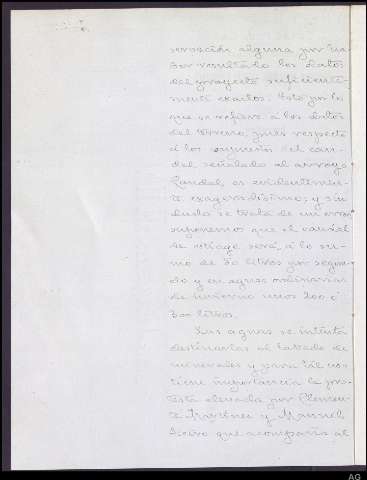 servación alguna por ha-
ber resultado los datos
del proyecto suficiente-
mente exactos. Esto por lo
que se refiere á los datos
del terreno, pues respecto
á los del cau-
dal señalado al arroyo
Candal, es evidentemen-
te exageradísimo; y sin
duda se trata de un error
suponemos que el caudal
de estiage será, á lo su-
mo de 30 litros por segun-
do y en aguas ordinarias
de invierno unos 200 ó
300 litros.
Las aguas se intenta
destinarlas al lavado de
minerales y para tal
tiene importancia la pro-
testa elevada por Clemen-
te Martínez y Manuel
que acompaña al
AG